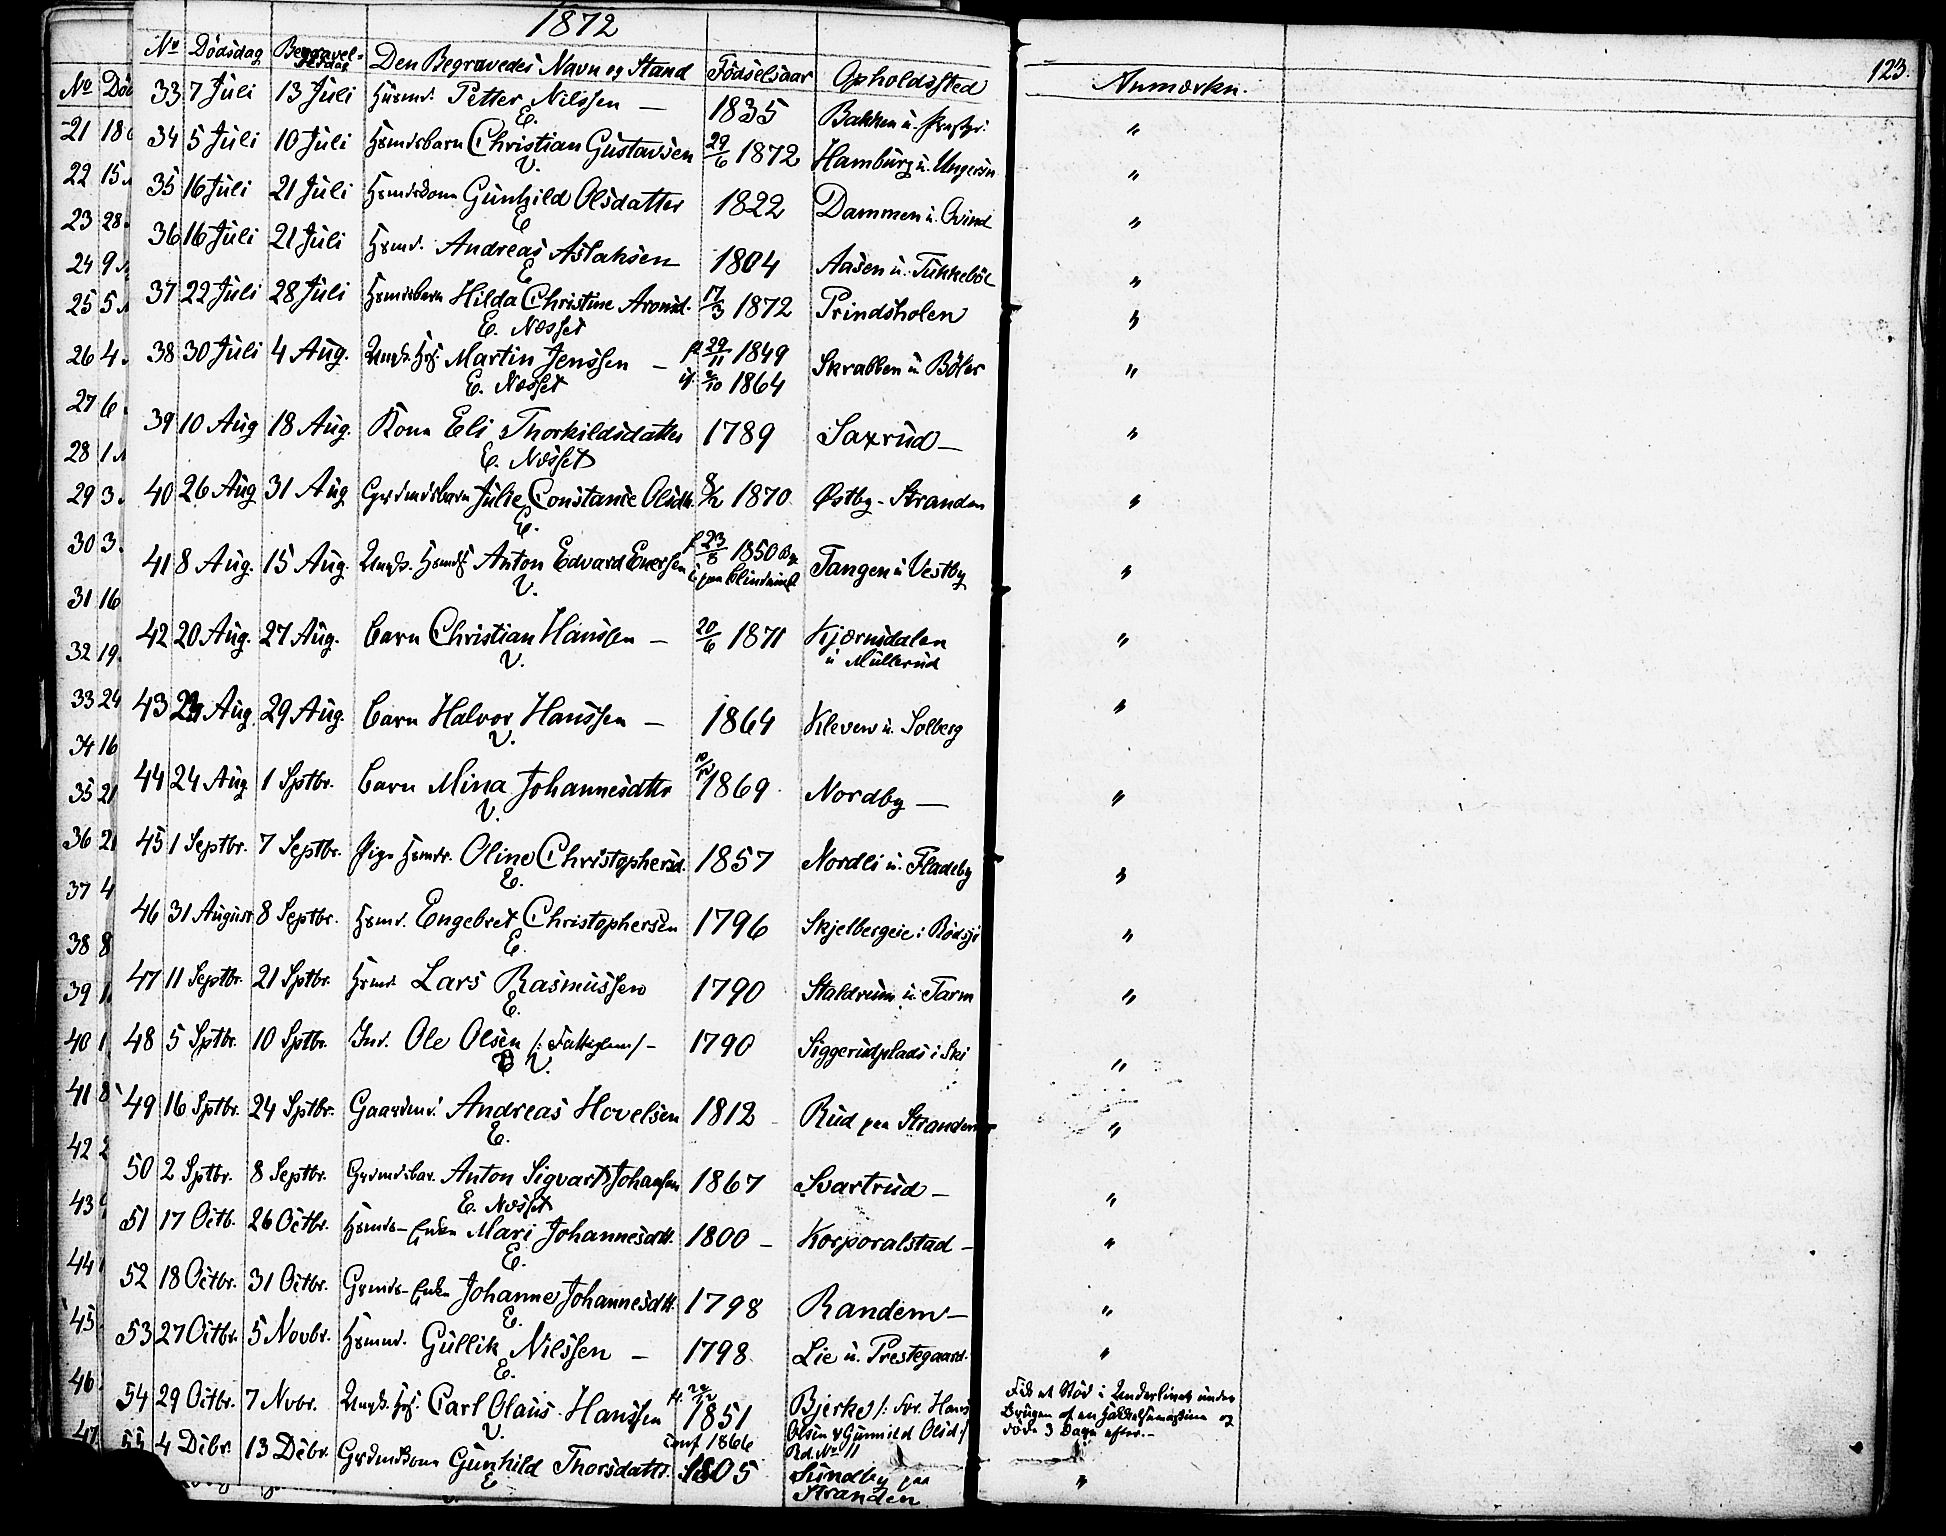 1872
123.
No Dødsdag Begravelsesdag Den Begravedes Navn og Stand Fødselsaar Opholdssted Anmærkn.
33 7 Juli 13 Juli Husmd. Petter Nilssen — 1835 Bakken u. "
E.
34 5 Juli 10 Juli Hsmdsbarn Christian Gustavsen 29/6 1872 Hamburg u. Ungersn "
V.
35 16 Juli 21 Juli Hsmdskone Gunhild Olsdatter 1822 Dammen u. Qvind "
E
36 16 Juli 21 Juli Hsmd. Andreas Aslaksen 1804 Aasen u. Tukkeböl "
E
37 22 Juli 28 Juli Hsmdsbarn Hilda Christine Aronsd. 17/3 1872 Prindsholen "
E. Næsset
38 30 Juli 4 Aug. Ungk. Hsf. Martin Jenssen — f. 29/11 1849 Skrabben u Böler "
E. Næsset 2/10 1864
39 10 Aug 18 Aug. Kone Eli Thorkildsdatter 1789 Saxrud — "
E. Næsset
40 26 Aug 31 Aug Grdmdsbarn Julie Constance Olsdtr. 8/12 1870 Østby - Stranden "
E.
41 8 Aug. 15 Aug. Ungk. Hsmdsf. Anton Edvard Eversen f. 23/8 1850 Tangen u Vestby "
V.
42 20 Aug. 27 Aug. Barn Christian Hanssen — 20/6 1871 Kjærnsdalen "
V. u Müllerud
43 23 Aug. 29 Aug. Barn Halvor Hanssen — 1864 Kleven u. Solberg "
V.
44 24 Aug 1 Sptbr. Barn Mina Johannesdttr 1869 Nordby — "
V.
45 1 Septbr. 7 Septbr. Pige Hsmds. Oline Christophersd. 1857 Nordli u. Fladeby "
E.
46 31 August 8 Septbr. Hsmd. Engebret Christophersen 1796 Skjelbergeie i "
E.
47 11 Septbr. 21 Sptbr. Hsmd. Lars Rasmussen 1790 Staldrum u Tarm "
E.
48 5 Sptbr. 10 Sptbr. Ind. Ole Olsen /: Fattiglem / — 1790 Siggerudplads i Ski "
V.
49 16 Sptbr. 24 Sptbr. Gaardmd. Andreas Hovelsen 1812 Rud paa Stranden "
E.
50 2 Sptbr. 8 Septbr. Grdmdsbar. Anton Sigvart Johansen 1867 Svartrud — "
E. Næsset
51 17 Octb. 26 Octbr. Hsmds- Enke Mari Johannesdtt. 1800 — Korporalstad — "
E.
52 18 Octbr. 31 Octbr. Grmds- Enke Johanne Johannesdtt. 1798 Randem — "
E.
53 27 Octbr. 5 Novbr. Hsmmd. Gullik Nilssen — 1798 Lie u. Prestegaard. "
E.
54 29 Octbr. 7 Nvbr. Ungk. Hsf. Carl Olaus Hanssen f. 1851 Bjerke /: For. Hans Fik et Stöd i Underlivet under
V. Conf 1866 Olsen & Gunnild Olsd :/ Brugen af en og
Rd. No 11 döde 3 Dage efter. —
55 4 Decbr. 13 Decbr. Grdmdkone Gunhild Thorsdattr. 1805 Sundby paa "
E Stranden
No Död
21 18
22 15
23 28
24 9
25 5
26 4
27 6
28 1
29 3
30 3
31 16
32 19
33 24
34 16
35 21
36 21
37 4
38 8
39 1
40 1
41 8
42 2
43
44
45
46
47